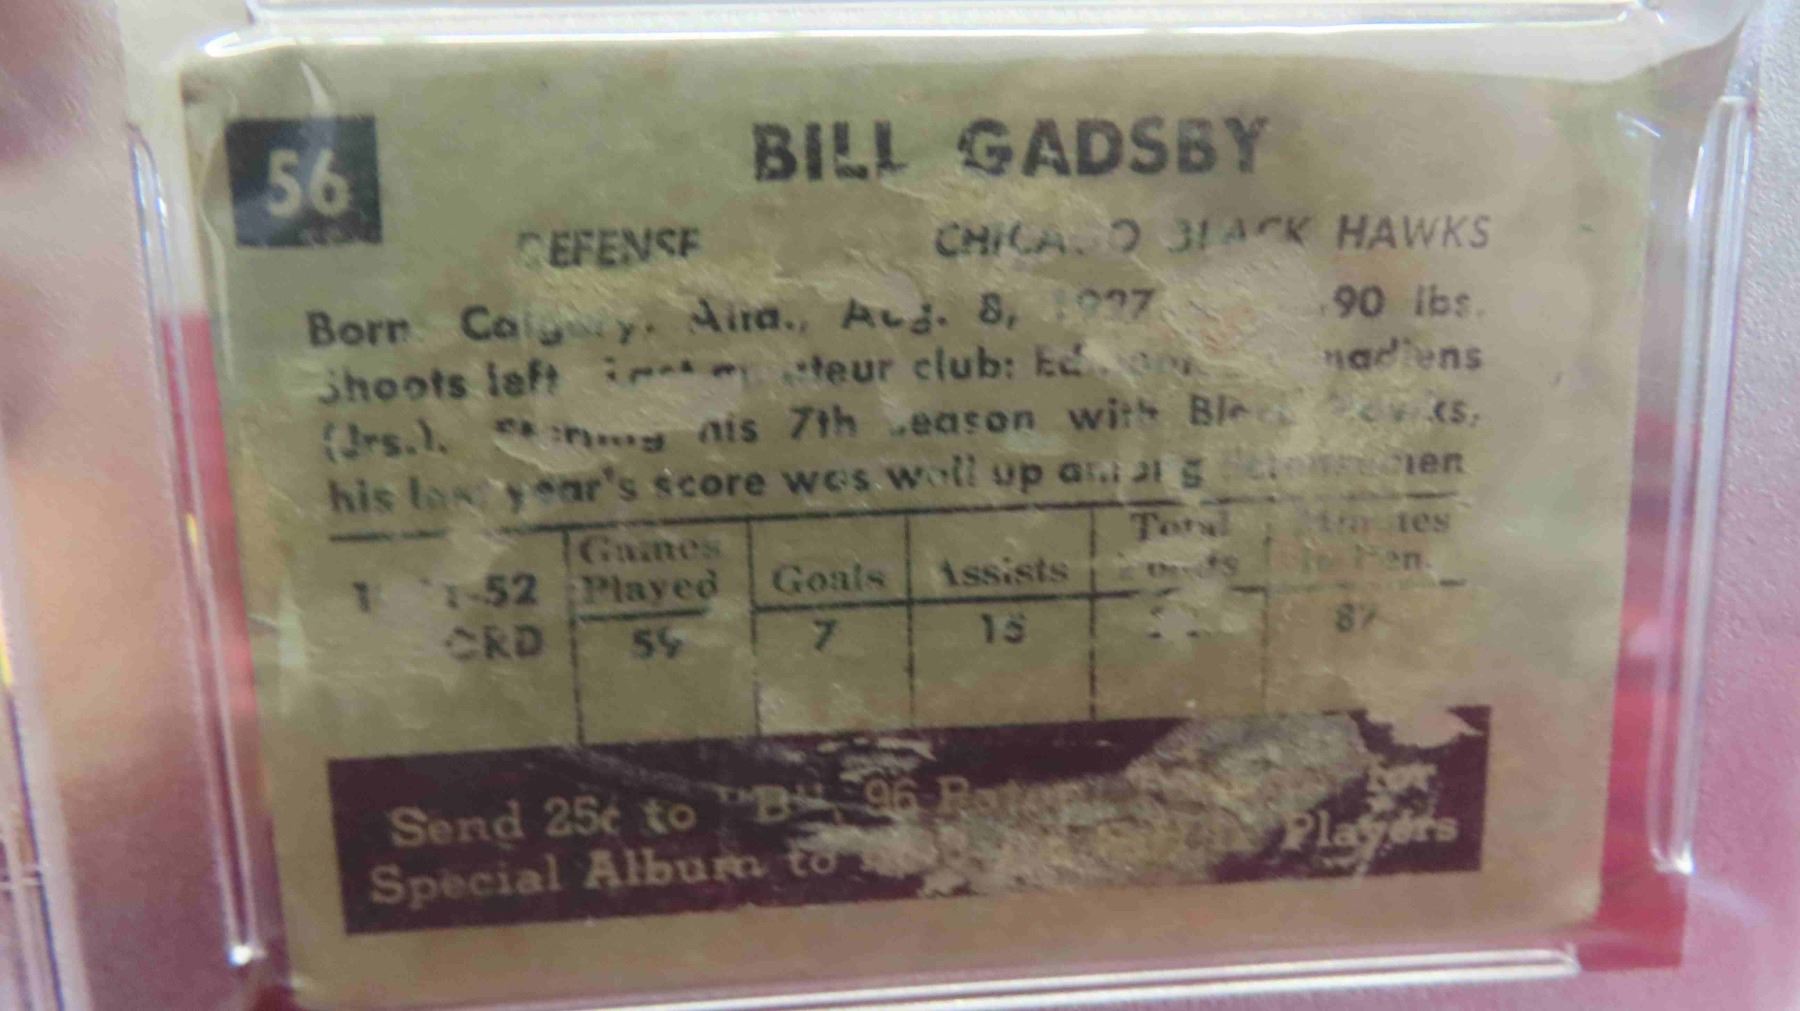 56
BILL GADSBY
DEFENSE CHICAGO BLACK HAWKS
Born Calgary, Alta., Aug. 8, 1927 190 lbs.
Shoots left Last amateur club: Canadiens
(Jrs.). Starting his 7th season with Black Hawks,
his last year's score was well up among defensemen
Games Played Goals Assists Total Points Minutes in Pen.
1951-52
CRD 59 7 15 87
Send 25¢ to 96 for
Special Album to Players